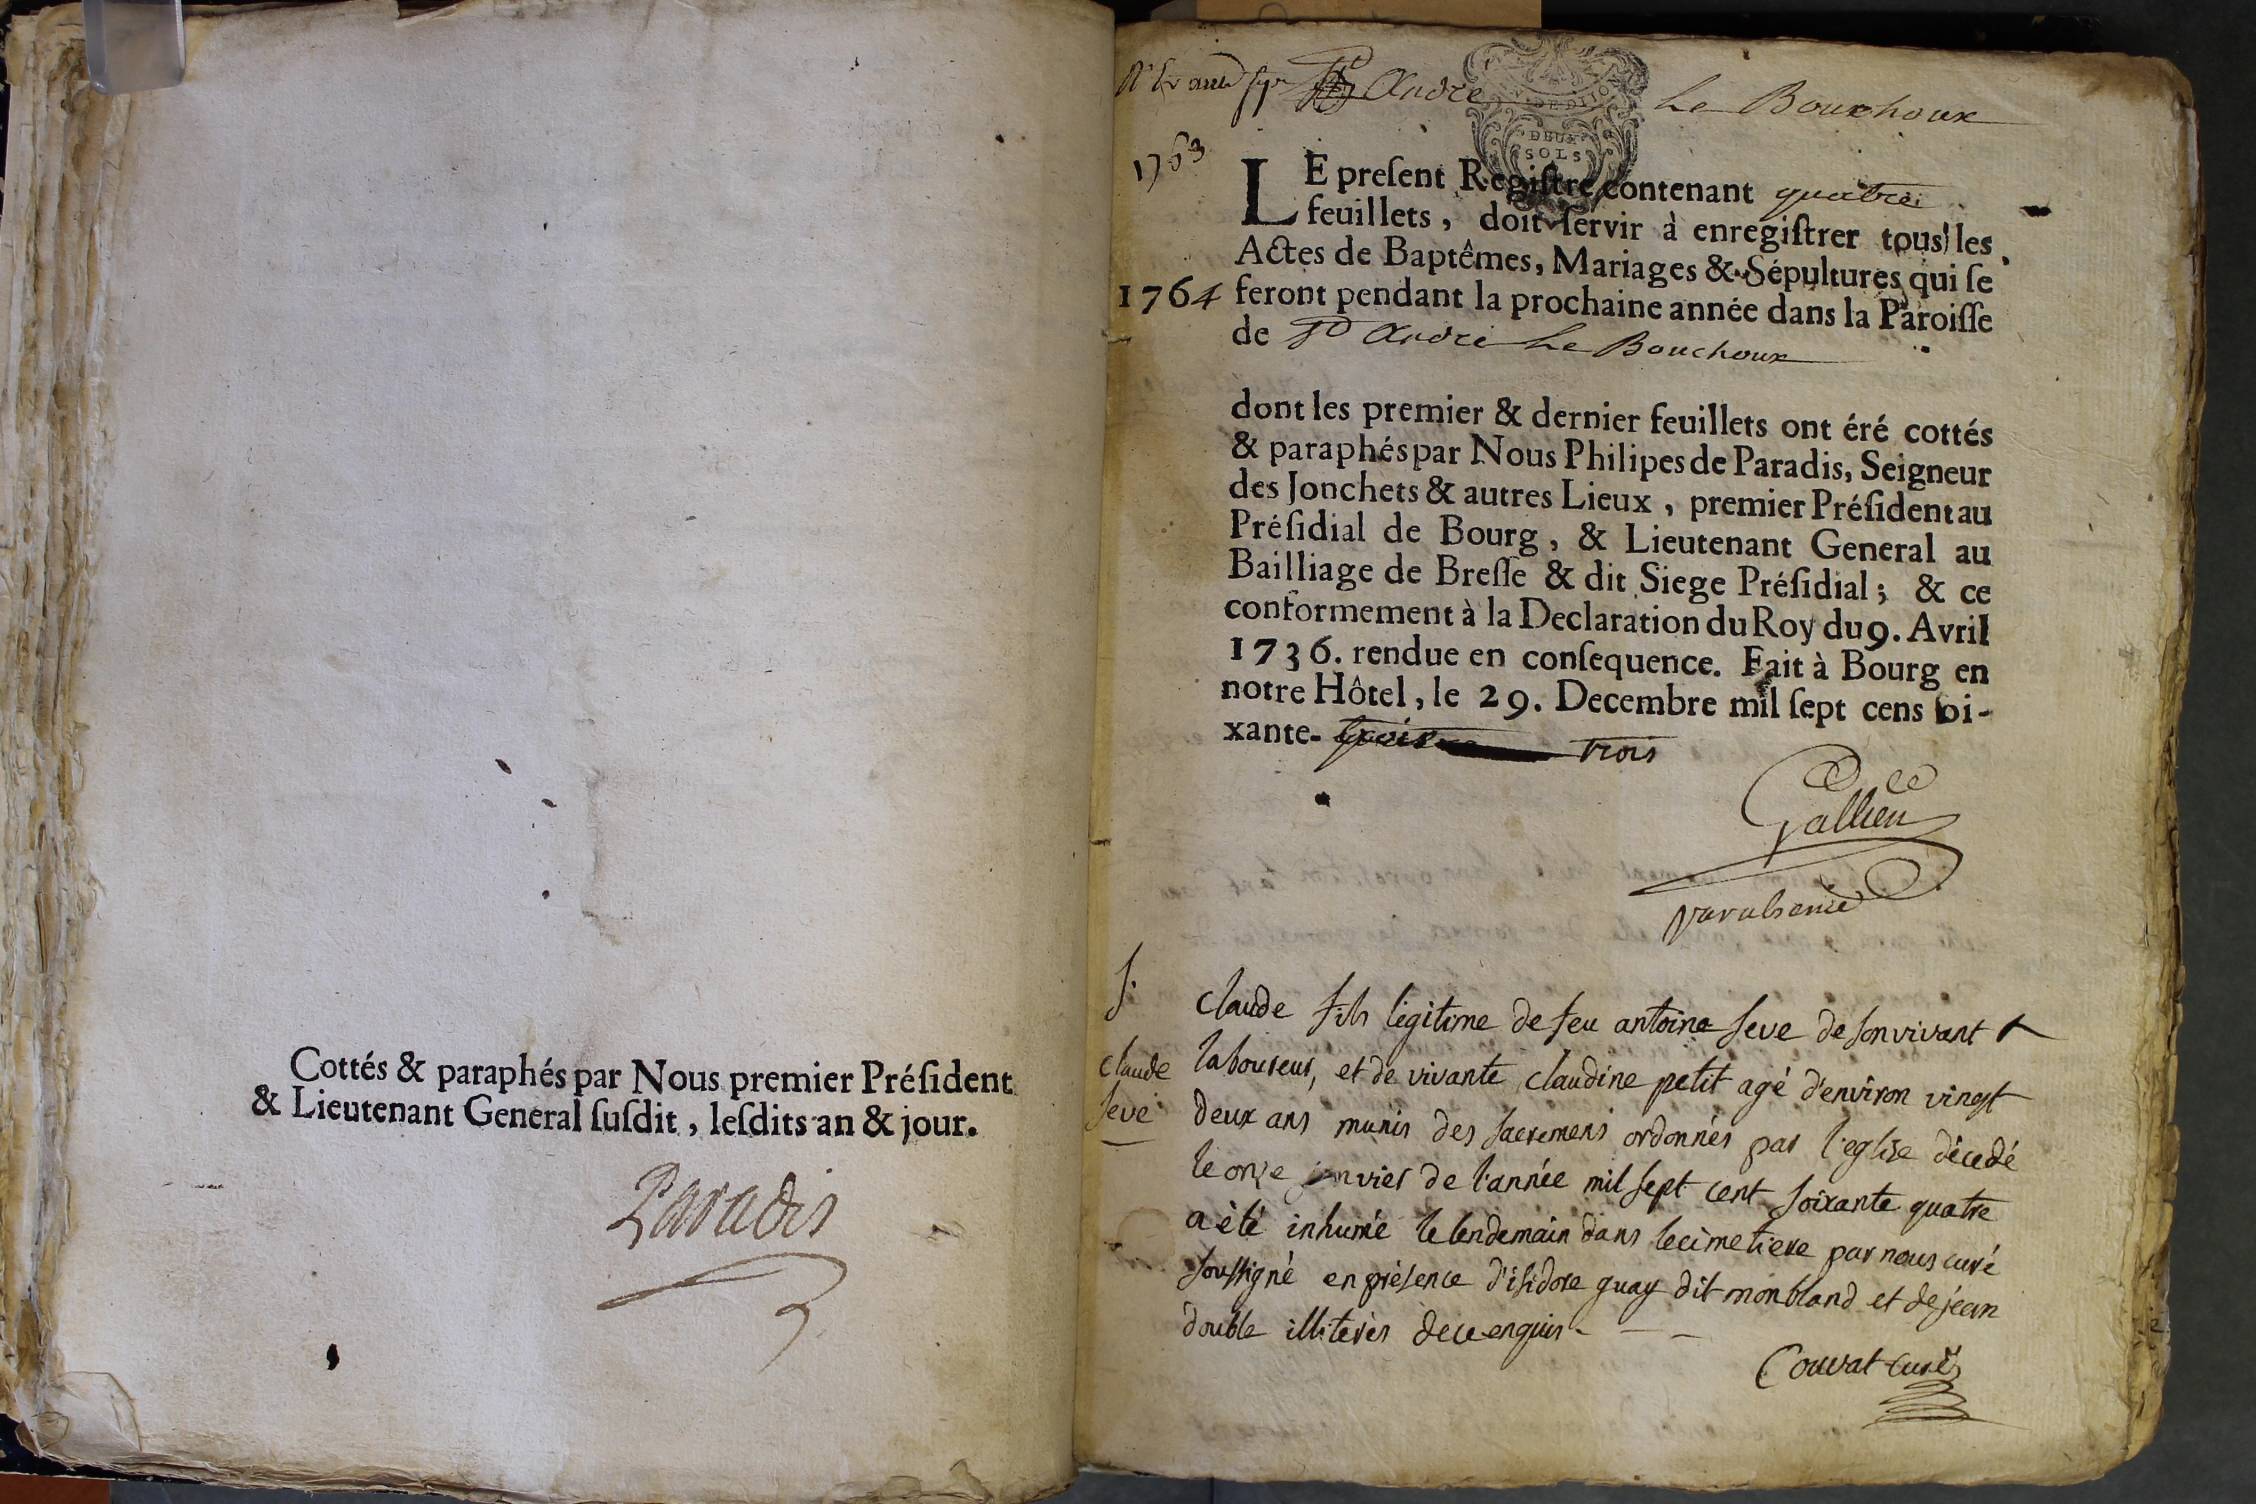 Cottés & paraphés par Nous premier Préſident
& Lieutenant General ſuſdit, leſdits an & jour.
Paradis
Andre Le Bouchoux
DEUX
SOLS
1763
LE preſent Regiſtre contenant quatre
feuillets, doit ſervir à enregiſtrer tous les
Actes de Baptêmes, Mariages & Sépultures qui ſe
1764 feront pendant la prochaine année dans la Paroiſſe
de St Andre Le Bouchoux
dont les premier & dernier feuillets ont éré cottés
& paraphés par Nous Philipes de Paradis, Seigneur
des Jonchets & autres Lieux, premier Préſident au
Préſidial de Bourg, & Lieutenant General au
Bailliage de Breſſe & dit Siege Préſidial; & ce
conformement à la Declaration du Roy du 9. Avril
1736. rendue en conſequence. Fait à Bourg en
notre Hôtel, le 29. Decembre mil ſept cens ſoi-
xante- trois
Gallien
S.
claude
seve
claude fils légitime de feu antoine seve de son vivant
laboureur, et de vivante claudine petit agé d'environ vingt
deux ans munis des sacremens ordonnés par l'eglise décedé
le onze janvier de l'année mil sept cent soixante quatre
a été inhumé le lendemain dans le cimetiere par nous curé
soussigné en présence d'isidore guay dit monbland et de jean
double illiterés de ce enquis
Couvat curé